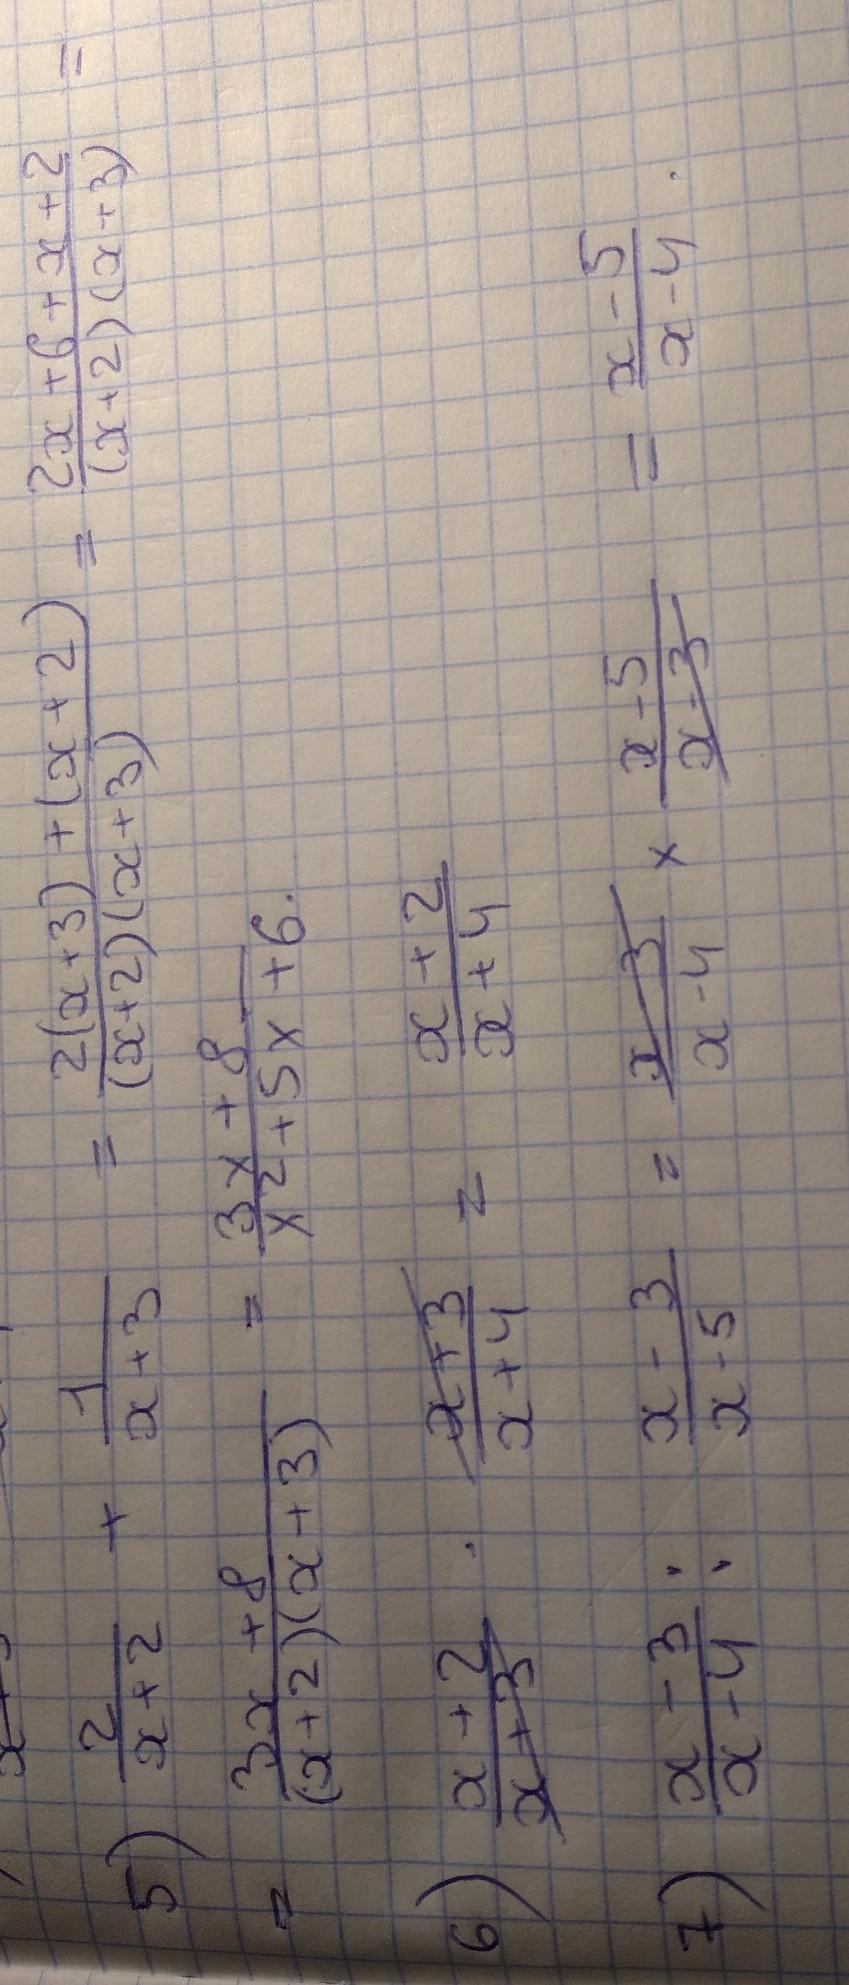 5) 2/(x+2) + 1/(x+3) = (2(x+3)+(x+2))/((x+2)(x+3)) = (2x+6+x+2)/((x+2)(x+3)) =
= (3x+8)/((x+2)(x+3)) = (3x+8)/(x2+5x+6).
6) (x+2)/(x+3) · (x+3)/(x+4) = (x+2)/(x+4)
7) (x-3)/(x-4) : (x-3)/(x-5) = (x-3)/(x-4) × (x-5)/(x-3) = (x-5)/(x-4).